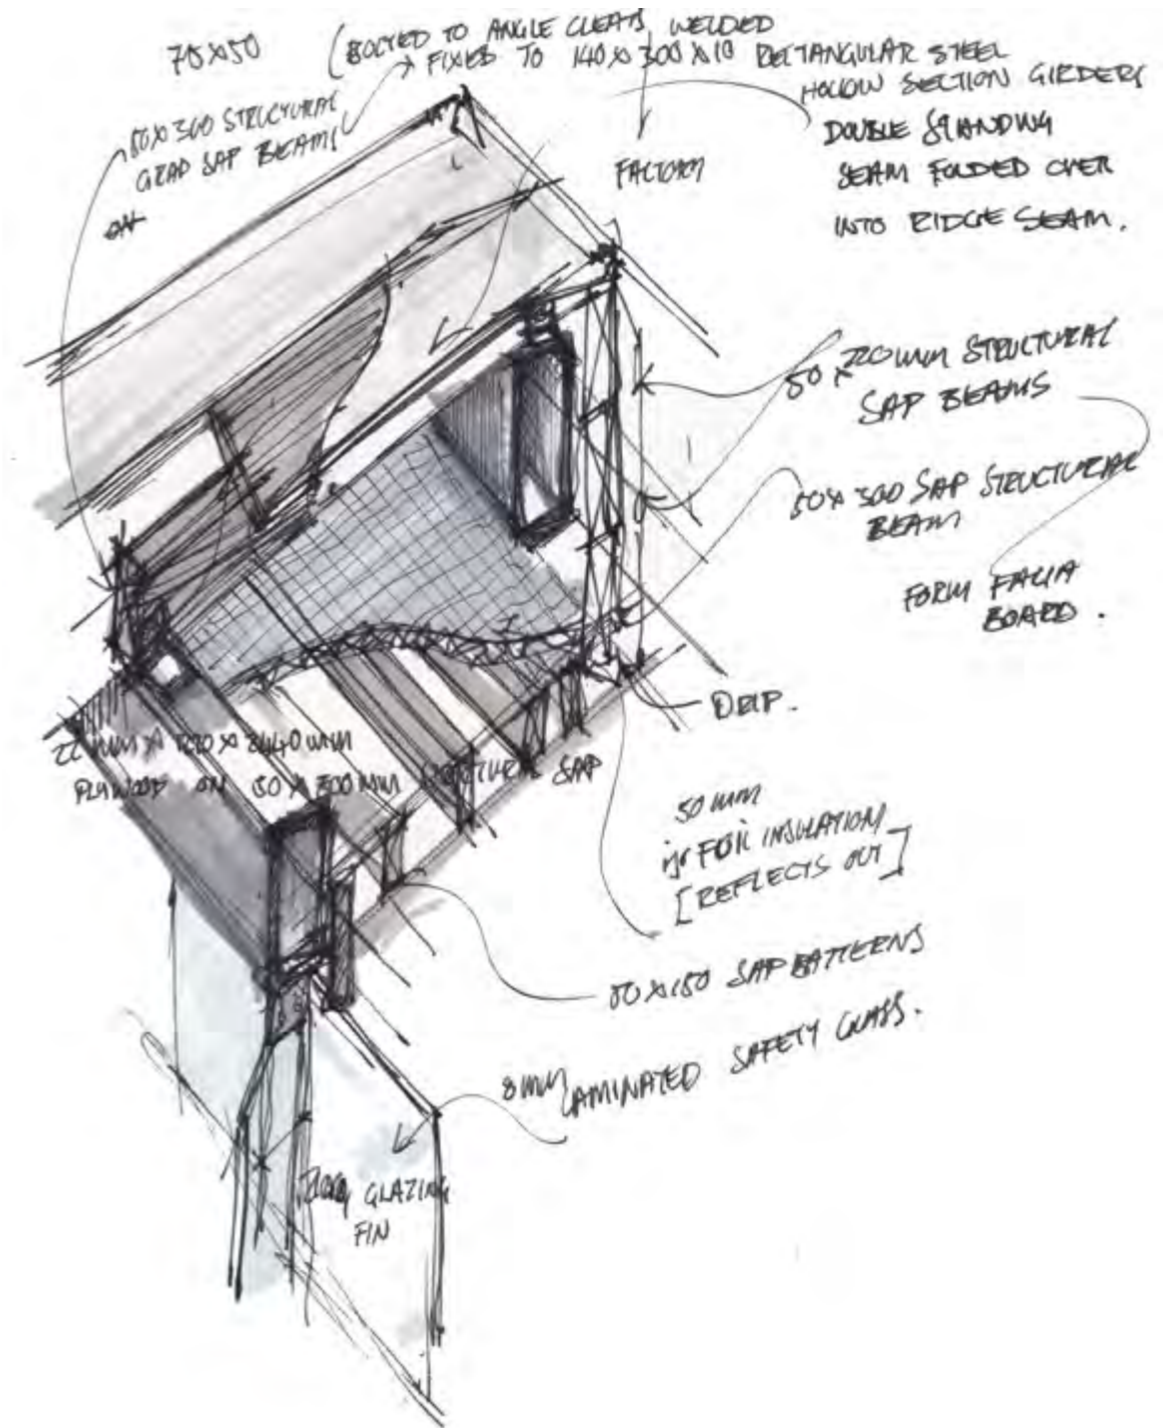 70 x 50 (BOLTED TO ANGLE CLEATS WELDED
FIXED TO 140 x 300 x 10 RECTANGULAR STEEL
HOLLOW SECTION GIRDERS
50 x 300 STRUCTURAL
GRAD SAP BEAMS
ON
FACTORY
DOUBLE STANDING
SEAM FOLDED OVER
INTO RIDGE SEAM.
50 x 220 mm STRUCTURAL
SAP BEAMS
50 x 300 SAP STRUCTURAL
BEAM
FORM FACIA
BOARD.
DRIP.
22 mm x x 2440 mm
PLYWOOD ON 50 x 300 mm SAP
50 mm
FOIL INSULATION
[REFLECTS OUT]
50 x 150 SAP BATTERNS
8 mm LAMINATED SAFETY GLASS.
GLAZING
FIN